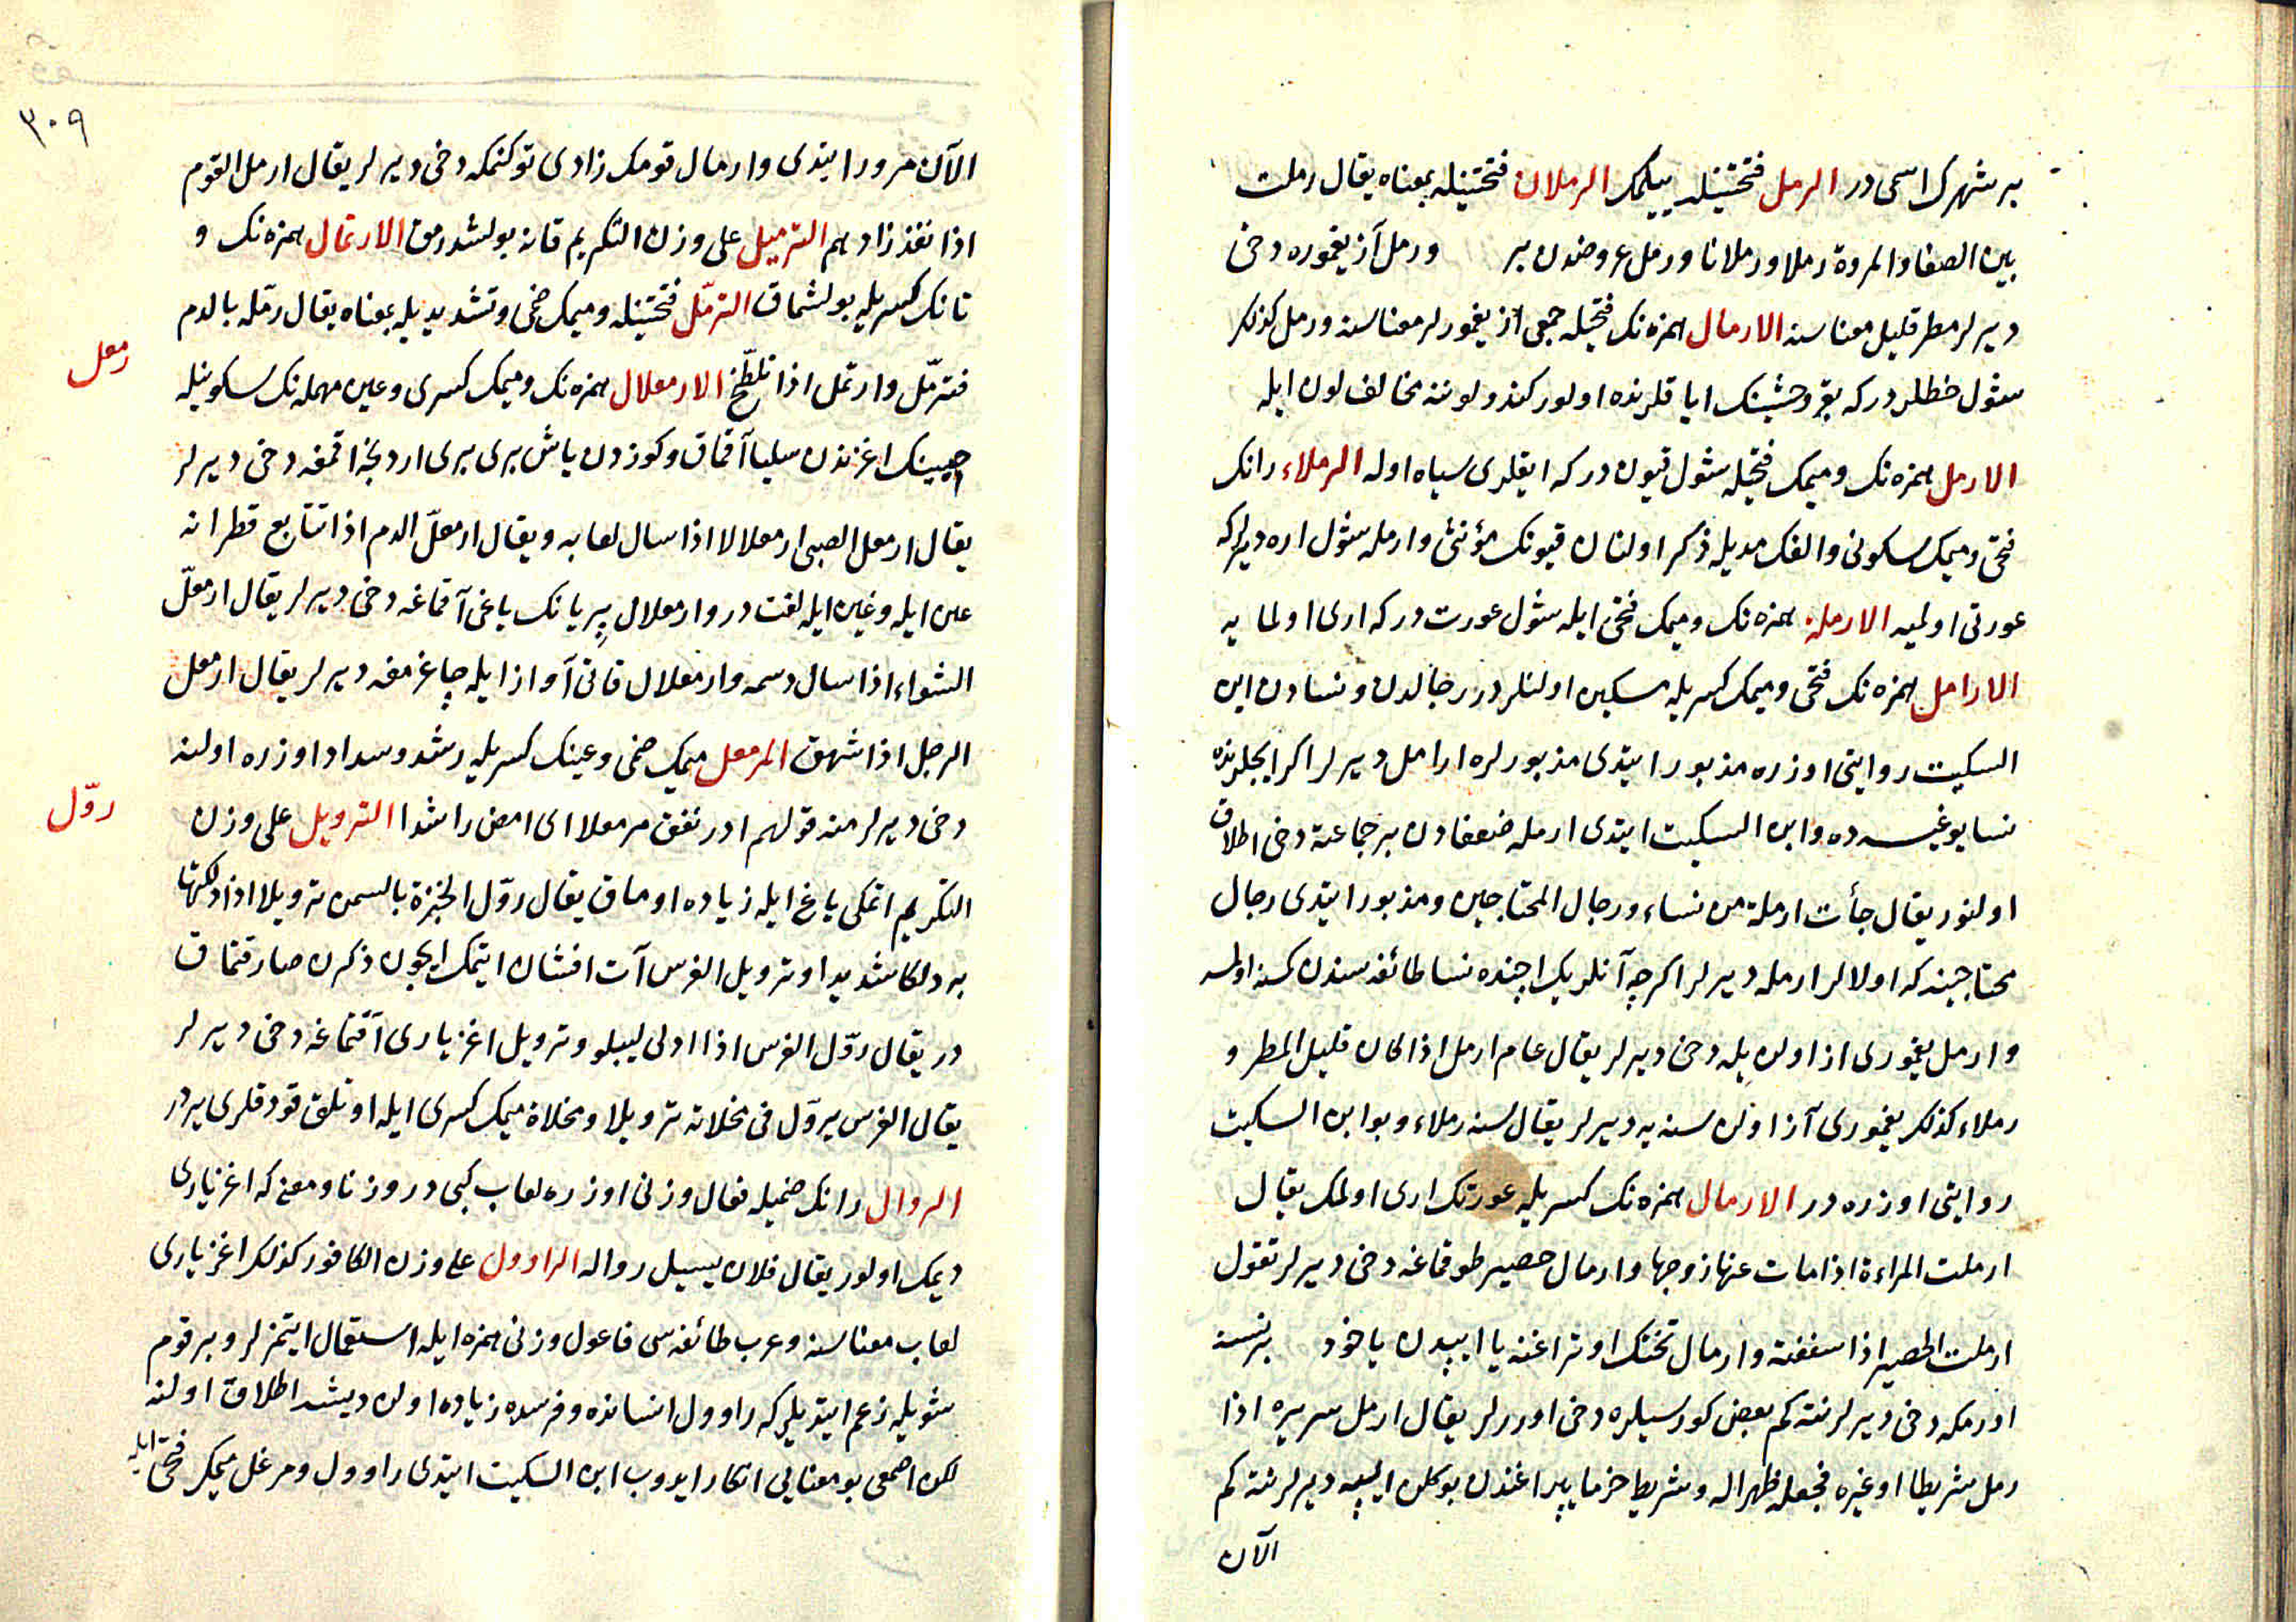 بر شهرك اسمی در الرمل فتحتینله ییلمك الرملان فتحتینله بمعناه یقال رملت
بین الصفا والمروة رملا ورملانا ورمل عروضدن بر ورمل آز یغموره دخی
دیرلر مطر قلیل معناسنه الارمال همزه نك فتحیله جمعی از یغمورلر معناسنه ورمل كذلك
شول خطلردر كه بقر وحشینك ایاقلرنده اولور كندو لوننه مخالف لون ایله
الارمل همزه نك ومیمك فتحیله شول قیون در كه ایقلری سیاه اوله الرملاء رانك
فتحی ومیمك سكونی والفك مدیله ذكر اولنان قیونك مؤنثی وارمله شول اره دیرلر كه
عورتی اولمیه الارملة همزه نك ومیمك فتحی ایله شول عورت در كه اری اولمایه
الارامل همزه نك فتحی ومیمك كسریله مسكین اولنلردر رجالدن ونسادن ابن
السكیت روایتی اوزره مذبور ایتدی مذبورلره ارامل دیرلر اكر ایچلرنده
نسا یوغیسه ده وابن السكیت ایتدی ارمله ضعفادن بر جماعته دخی اطلاق
اولنور یقال جأت ارملة من نساء ورجال المحتاجین ومذبور ایتدی رجال
محتاجینه كه اولالر ارمله دیرلر اكرچه آنلریك ایچنده نسا طائفه سندن كسه اولمسه
وارمل یغموری از اولن یله دخی دیرلر یقال عام ارمل اذا كان قلیل المطر و
رملاء كذلك یغموری آز اولن سنه یه دیرلر یقال سنه رملاء وبو ابن السكیت
روایتی اوزره در الارمال همزه نك كسریله عورتك اری اولمك یقال
ارملت المراءة اذا مات عنها زوجها وارمال حصیر طوقماغه دخی دیرلر تقول
ارملت الحصیر اذا سففته وارمال تختك اوتراغنه یا ایپدن یاخود بر نسنه
اورمكه دخی دیرلر نته كم بعض كورسیلره دخی اوررلر یقال ارمل سریره اذا
رمل شریطا او غیره فجعله ظهرا له وشریط خرما یپراغندن بوكلن ایپه دیرلر نته كم
الآن
٣٠٩
الآن مرور ایتدی وارمال قومك زادی توكنمكه دخی دیرلر یقال ارمل القوم
اذا نفذ زادهم الترمیل علی وزن التكریم قانه بولشدرمق الارتمال همزه نك و
تانك كسریله بولشماق الترمّل فتحتینله ومیمك ضمی وتشدیدیله بمعناه یقال رمّله بالدم
فترمّل وارتمل اذا تلطّخ الارمعلال همزه نك ومیمك كسری وعین مهمله نك سكونیله
رمعل
صبینك اغزندن سلیا آقماق وكوزدن یاش بری بری اردنجه اقمغه دخی دیرلر
یقال ارمعل الصبی ارمعلالا اذا سال لعابه ویقال ارمعلّ الدم اذا تتابع قطرانه
عین ایله وغین ایله لغت در وارمعلال بریانك یاغی آقماغه دخی دیرلر یقال ارمعلّ
الشواء اذا سال دسمه وارمعلال قاتی آواز ایله چاغرمغه دیرلر یقال ارمعل
الرجل اذا شهق المرمعل میمك ضمی وعینك كسریله رشد وسداد اوزره اولنه
دخی دیرلر منه قولهم ادرنفق مرمعلا ای امض راشدا الترویل علی وزن
روّل
التكریم اتمكی یاغ ایله زیاده اوماق یقال روّل الخبزة بالسمن ترویلا اذا دلكتها
به دلكا شدیدا وترویل الفرس آت افشان ایتمك ایچون ذكرن صارقتماق
در یقال روّل الفرس اذا ادلی لیبلو وترویل اغز یاری آقتماغه دخی دیرلر
یقال الفرس یروّل فی مخلاته ترویلا ومخلاة میمك كسری ایله اوتلق قودقلری یردر
الروال رانك ضمیله فعال وزنی اوزره لعاب كبی در وزنا ومعنی كه اغز یاری
دیمك اولور یقال فلان یسیل رواله الراوول علی وزن الكافور كذلك اغز یاری
لعاب معناسنه وعرب طائفه سی فاعول وزنی همزه ایله استعمال ایتمزلر وبر قوم
شویله زعم ایتدیلر كه راوول انسانده وفرسده زیاده اولن دیشه اطلاق اولنه
لكن اصمعی بو معنایی انكار ایدوب ابن السكیت ایتدی راوول ومرغل میمك فتحی ایله